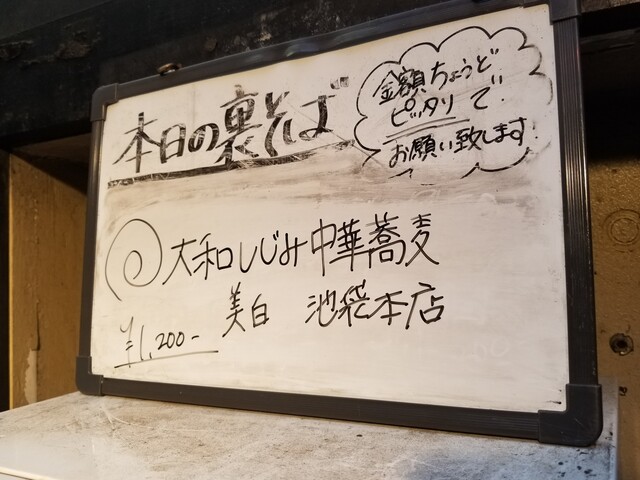 本日の裏そば
金額ちょうど
ピッタリで
お願い致します!
大和しじみ中華蕎麦
美白 池袋本店
¥1,200-